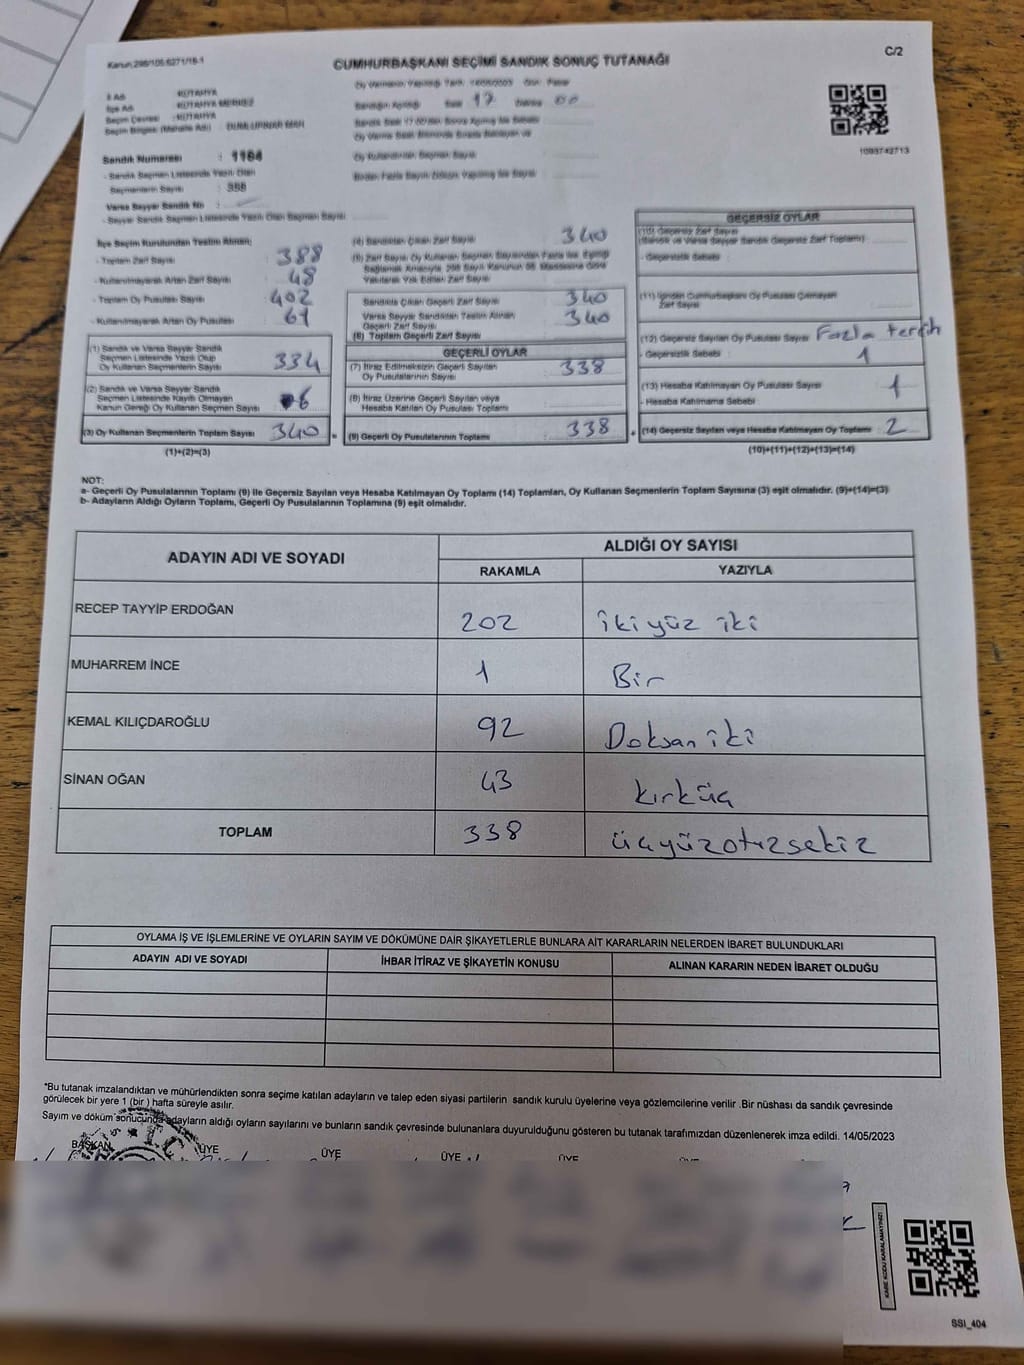 Kanun,298/105-6271/18-1
CUMHURBAŞKANI SEÇİMİ SANDIK SONUÇ TUTANAĞI
C/2
İl Adı : KÜTAHYA
İlçe Adı : KÜTAHYA MERKEZ
Seçim Çevresi : KÜTAHYA
Seçim Bölgesi (Mahalle Adı) : DUMLUPINAR MAH.
Sandık Numarası : 1164
- Sandık Seçmen Listesinde Yazılı Olan
Seçmenlerin Sayısı :
Varsa Seyyar Sandık No :
- Seyyar Sandık Seçmen Listesinde Yazılı Olan Seçmen Sayısı
Sandığın Açıldığı Saat 17 Dakika 00
Oy Kullandırılan Seçmen Sayısı
1093742713
İlçe Seçim Kurulundan Teslim Alınan;
- Toplam Zarf Sayısı 388
- Kullanılmayarak Artan Zarf Sayısı : 48
- Toplam Oy Pusulası Sayısı 402
- Kullanılmayarak Artan Oy Pusulası 61
(1) Sandık ve Varsa Seyyar Sandık
Seçmen Listesinde Yazılı Olup
Oy Kullanan Seçmenlerin Sayısı 334
(2) Sandık ve Varsa Seyyar Sandık
Seçmen Listesinde Kayıtlı Olmayan
Kanun Gereği Oy Kullanan Seçmen Sayısı 6
(3) Oy Kullanan Seçmenlerin Toplam Sayısı 340
(1)+(2)=(3)
(4) Sandıktan Çıkan Zarf Sayısı 340
(5) Zarf Sayısı Oy Kullanan Seçmen Sayısından Fazla İse, Eşitliği
Sağlamak Amacıyla 298 Sayılı Kanunun 98. Maddesine Göre
Yakılarak Yok Edilen Zarf Sayısı
Sandıkta Çıkan Geçerli Zarf Sayısı 340
Varsa Seyyar Sandıktan Teslim Alınan
Geçerli Zarf Sayısı 340
(6) Toplam Geçerli Zarf Sayısı
GEÇERLİ OYLAR
(7) İtiraz Edilmeksizin Geçerli Sayılan
Oy Pusulalarının Sayısı 338
(8) İtiraz Üzerine Geçerli Sayılan veya
Hesaba Katılan Oy Pusulası Toplamı
(9) Geçerli Oy Pusulalarının Toplamı 338
GEÇERSİZ OYLAR
(10) Geçersiz Zarf Sayısı
(Sandık ve Varsa Seyyar Sandık Geçersiz Zarf Toplamı)
- Geçersizlik Sebebi :
(11) İçinden Cumhurbaşkanı Oy Pusulası Çıkmayan
Zarf Sayısı
(12) Geçersiz Sayılan Oy Pusulası Sayısı Fazla tercih
- Geçersizlik Sebebi : 1
(13) Hesaba Katılmayan Oy Pusulası Sayısı 1
- Hesaba Katılmama Sebebi :
(14) Geçersiz Sayılan veya Hesaba Katılmayan Oy Toplamı : 2
(10)+(11)+(12)+(13)=(14)
NOT:
a- Geçerli Oy Pusulalarının Toplamı (9) ile Geçersiz Sayılan veya Hesaba Katılmayan Oy Toplamı (14) Toplamları, Oy Kullanan Seçmenlerin Toplam Sayısına (3) eşit olmalıdır. (9)+(14)=(3)
b- Adayların Aldığı Oyların Toplamı, Geçerli Oy Pusulalarının Toplamına (9) eşit olmalıdır.
ADAYIN ADI VE SOYADI
ALDIĞI OY SAYISI
RAKAMLA YAZIYLA
RECEP TAYYİP ERDOĞAN 202 ikiyüz iki
MUHARREM İNCE 1 Bir
KEMAL KILIÇDAROĞLU 92 Doksan iki
SİNAN OĞAN 43 kırküç
TOPLAM 338 üçyüzotuzsekiz
OYLAMA İŞ VE İŞLEMLERİNE VE OYLARIN SAYIM VE DÖKÜMÜNE DAİR ŞİKAYETLERLE BUNLARA AİT KARARLARIN NELERDEN İBARET BULUNDUKLARI
ADAYIN ADI VE SOYADI İHBAR İTİRAZ VE ŞİKAYETİN KONUSU ALINAN KARARIN NEDEN İBARET OLDUĞU
*Bu tutanak imzalandıktan ve mühürlendikten sonra seçime katılan adayların ve talep eden siyasi partilerin sandık kurulu üyelerine veya gözlemcilerine verilir .Bir nüshası da sandık çevresinde
görülecek bir yere 1 (bir ) hafta süreyle asılır.
Sayım ve döküm sonucunda adayların aldığı oyların sayılarını ve bunların sandık çevresinde bulunanlara duyurulduğunu gösteren bu tutanak tarafımızdan düzenlenerek imza edildi. 14/05/2023
BAŞKAN ÜYE ÜYE ÜYE ÜYE
KARE KODU KARALAMAYINIZ!
SSI_404